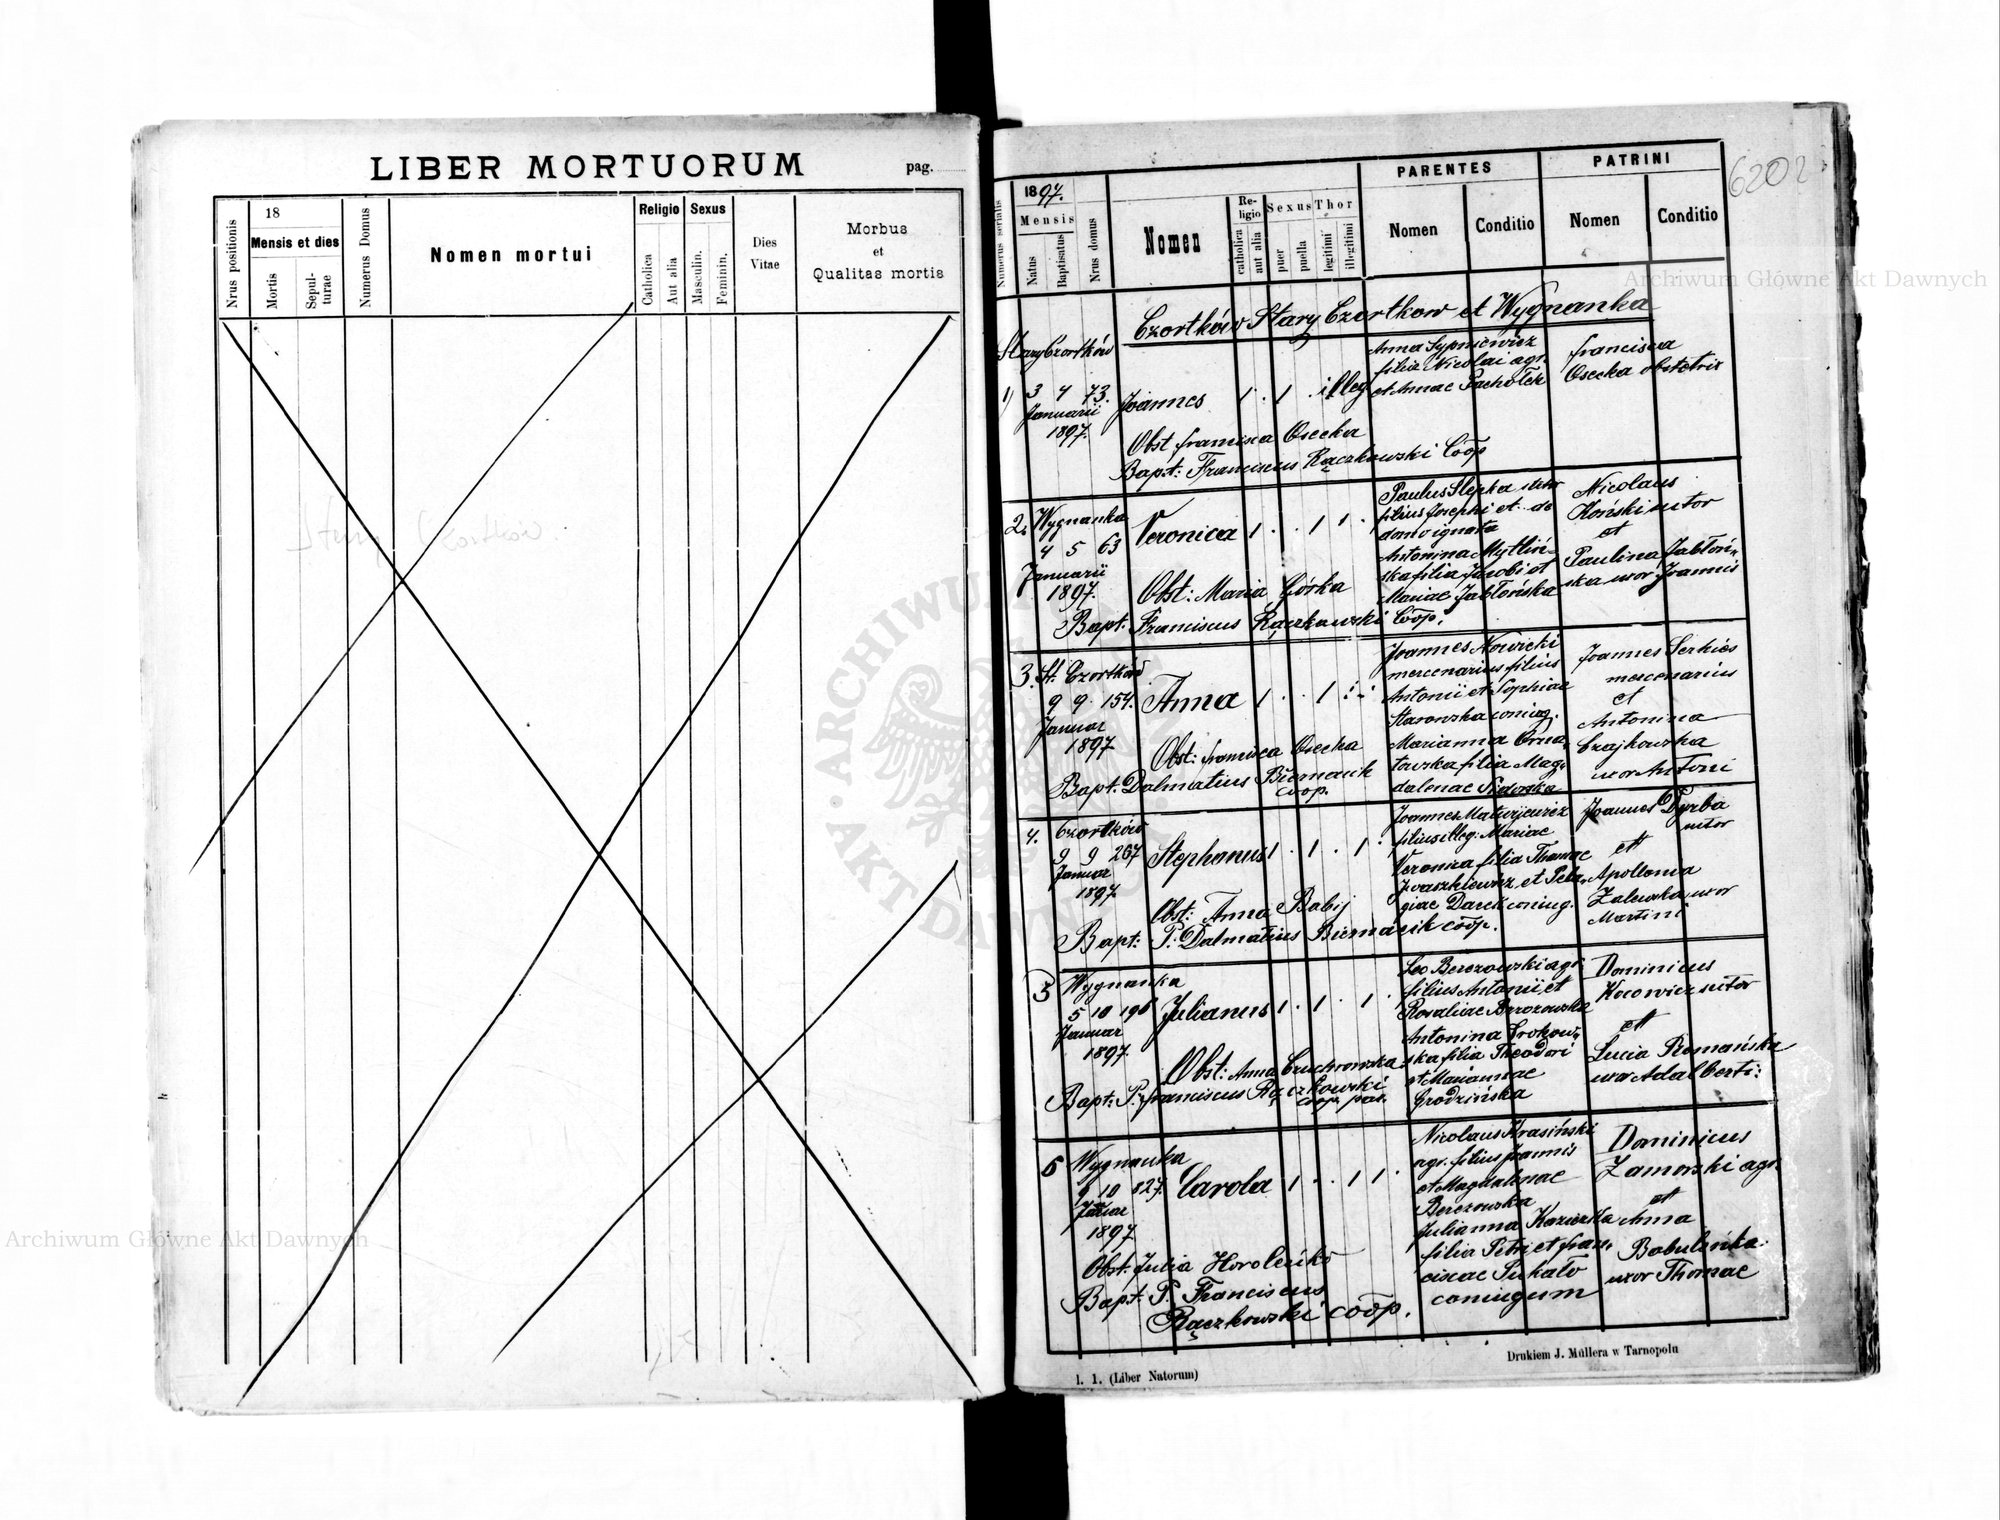 LIBER MORTUORUM
pag.
Nrus positionis
18
Mensis et dies
Mortis
Sepulturae
Numerus Domus
Nomen mortui
Religio
Catholica
Aut alia
Sexus
Masculin.
Feminin.
Dies
Vitae
Morbus
et
Qualitas mortis
Stary Czortków.
6202
Numerus serialis
1897.
Mensis
Natus
Baptisatus
Nrus domus
Nomen
Re-
ligio
catholica
aut alia
Sexus
puer
puella
Thor
legitimi
illegitimi
PARENTES
Nomen
Conditio
PATRINI
Nomen
Conditio
Czortków Stary Czortkow et Wygnanka
Stary Czortków
1) 3 4 73.
Januarii
1897.
Joannes
1 . 1 . illeg.
Anna Sypniewicz
filia Nicolai agr.
et Annae Pachołek
Francisca
Osecka obstetrix
Obst Francisca Osecka
Bapt: Franciscus Rączkowski Coop
2. Wygnanka
4 5 63
Januarii
1897.
Veronica
1 . . 1 1 .
Paulus Slepka sutor
filius Josephi et de
domo ignota
Antonina Mytliń-
ska filia Jacobi et
Mariae Jabłońska
Nicolaus
Koński sutor
et
Paulina Jabłoń-
ska uxor Joannis
Obst: Maria Górka
Bapt. Franciscus Rączkowski Coop.
3. St. Czortków
9 9. 154.
Januar
1897
Anna
Joannes Nowicki
mercenarius filius
Antonii et Sophiae
Starowska coniug.
Marianna Orna-
towska filia Mag-
dalenae Sidorska
Joannes Serkies
mercenarius
et
Antonina
Czajkowska
uxor Antoni
Obst: Francisca Osecka
Bapt. Dalmatius Biernacik
coop.
4. Czortków
9 9 267
Januar
1897.
Stephanus
1 . 1 . 1 .
Joannes Matwijewicz
filius illeg: Mariae
Veronica filia Thomae
Iwaszkiewicz et Pela-
giae Darek coniug.
Joannes Dyrba
sutor
et
Apollonia
Zalewska uxor
Martini
Obst: Anna Babij
Bapt: P. Dalmatius Biernacik coop.
5 Wygnanka
5 10 196
Januar
1897.
Julianus
1 . 1 . 1 .
Leo Berezowski agr.
filius Antonii et
Rosaliae Brzozowska
Antonina Grokow-
ska filia Theodori
et Mariannae
Grodzińska
Dominicus
Kocowicz sutor
et
Lucia Romańska
uxor Adalberti
Obst: Anna Czuchrowska
Bapt: P. Franciscus Rączkowski
coop. par.
6 Wygnanka
9 10 827.
Januar
1897
Carola
1 . . 1 1 .
Nicolaus Krasiński
agr. filius Joannis
et Magdalenae
Berezowska
Julianna Kazierska
filia Petri et Fran-
ciscae Pukało
coniugum
Dominicus
Zamorski agr.
et
Anna
Babulińska
uxor Thomae
Obst. Julia Horoleńko
Bapt. P. Franciscus
Rączkowski coop.
l. 1. (Liber Natorum)
Drukiem J. Müllera w Tarnopolu
Archiwum Główne Akt Dawnych
Archiwum Główne Akt Dawnych